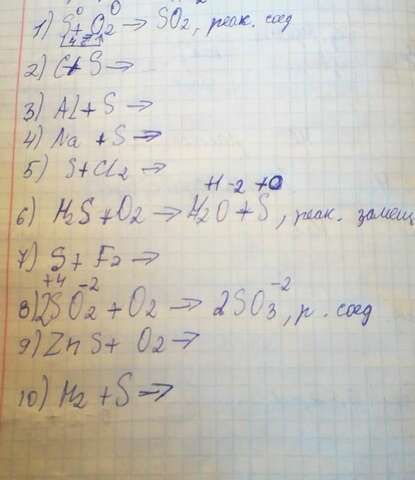 0 0
1) S + O2 → SO2, реак. соед
2) C + S →
3) Al + S →
4) Na + S →
5) S + Cl2 →
+1 -2 +0
6) H2S + O2 → H2O + S, реак. замещ
7) S + F2 →
+4 -2 -2
8) 2SO2 + O2 → 2SO3, р. соед
9) ZnS + O2 →
10) H2 + S →